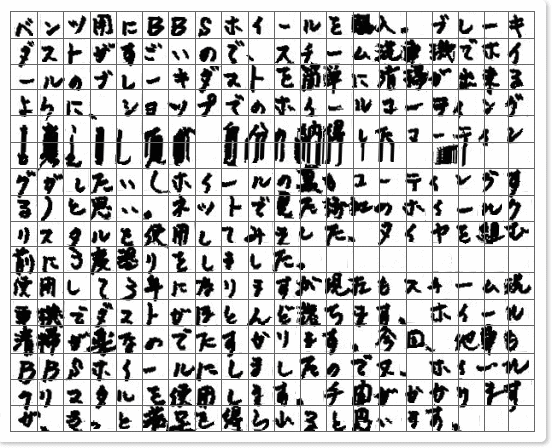 ベンツ用にBBSホイールを購入。ブレーキ
ダストがすごいので、スチーム洗車機でホイ
ールのブレーキダストを簡単に清掃が出来る
ように、ショップでのホイールコーティング
自分の納得したコーティン
グがしたい(ホイールの裏もコーティングす
る)と思い。ネットで見たのホイールク
リスタルを使用してみました。タイヤを組む
前に3度塗りをしました。
使用して3年になりますが現在もスチーム洗
車機でダストがほとんど落ちます、ホイール
清掃が楽なのでたすかります。今回、他車も
BBSホイールにしましたので又、ホイール
クリスタルを使用します。手間がかかります
が、きっと満足を得られると思います。